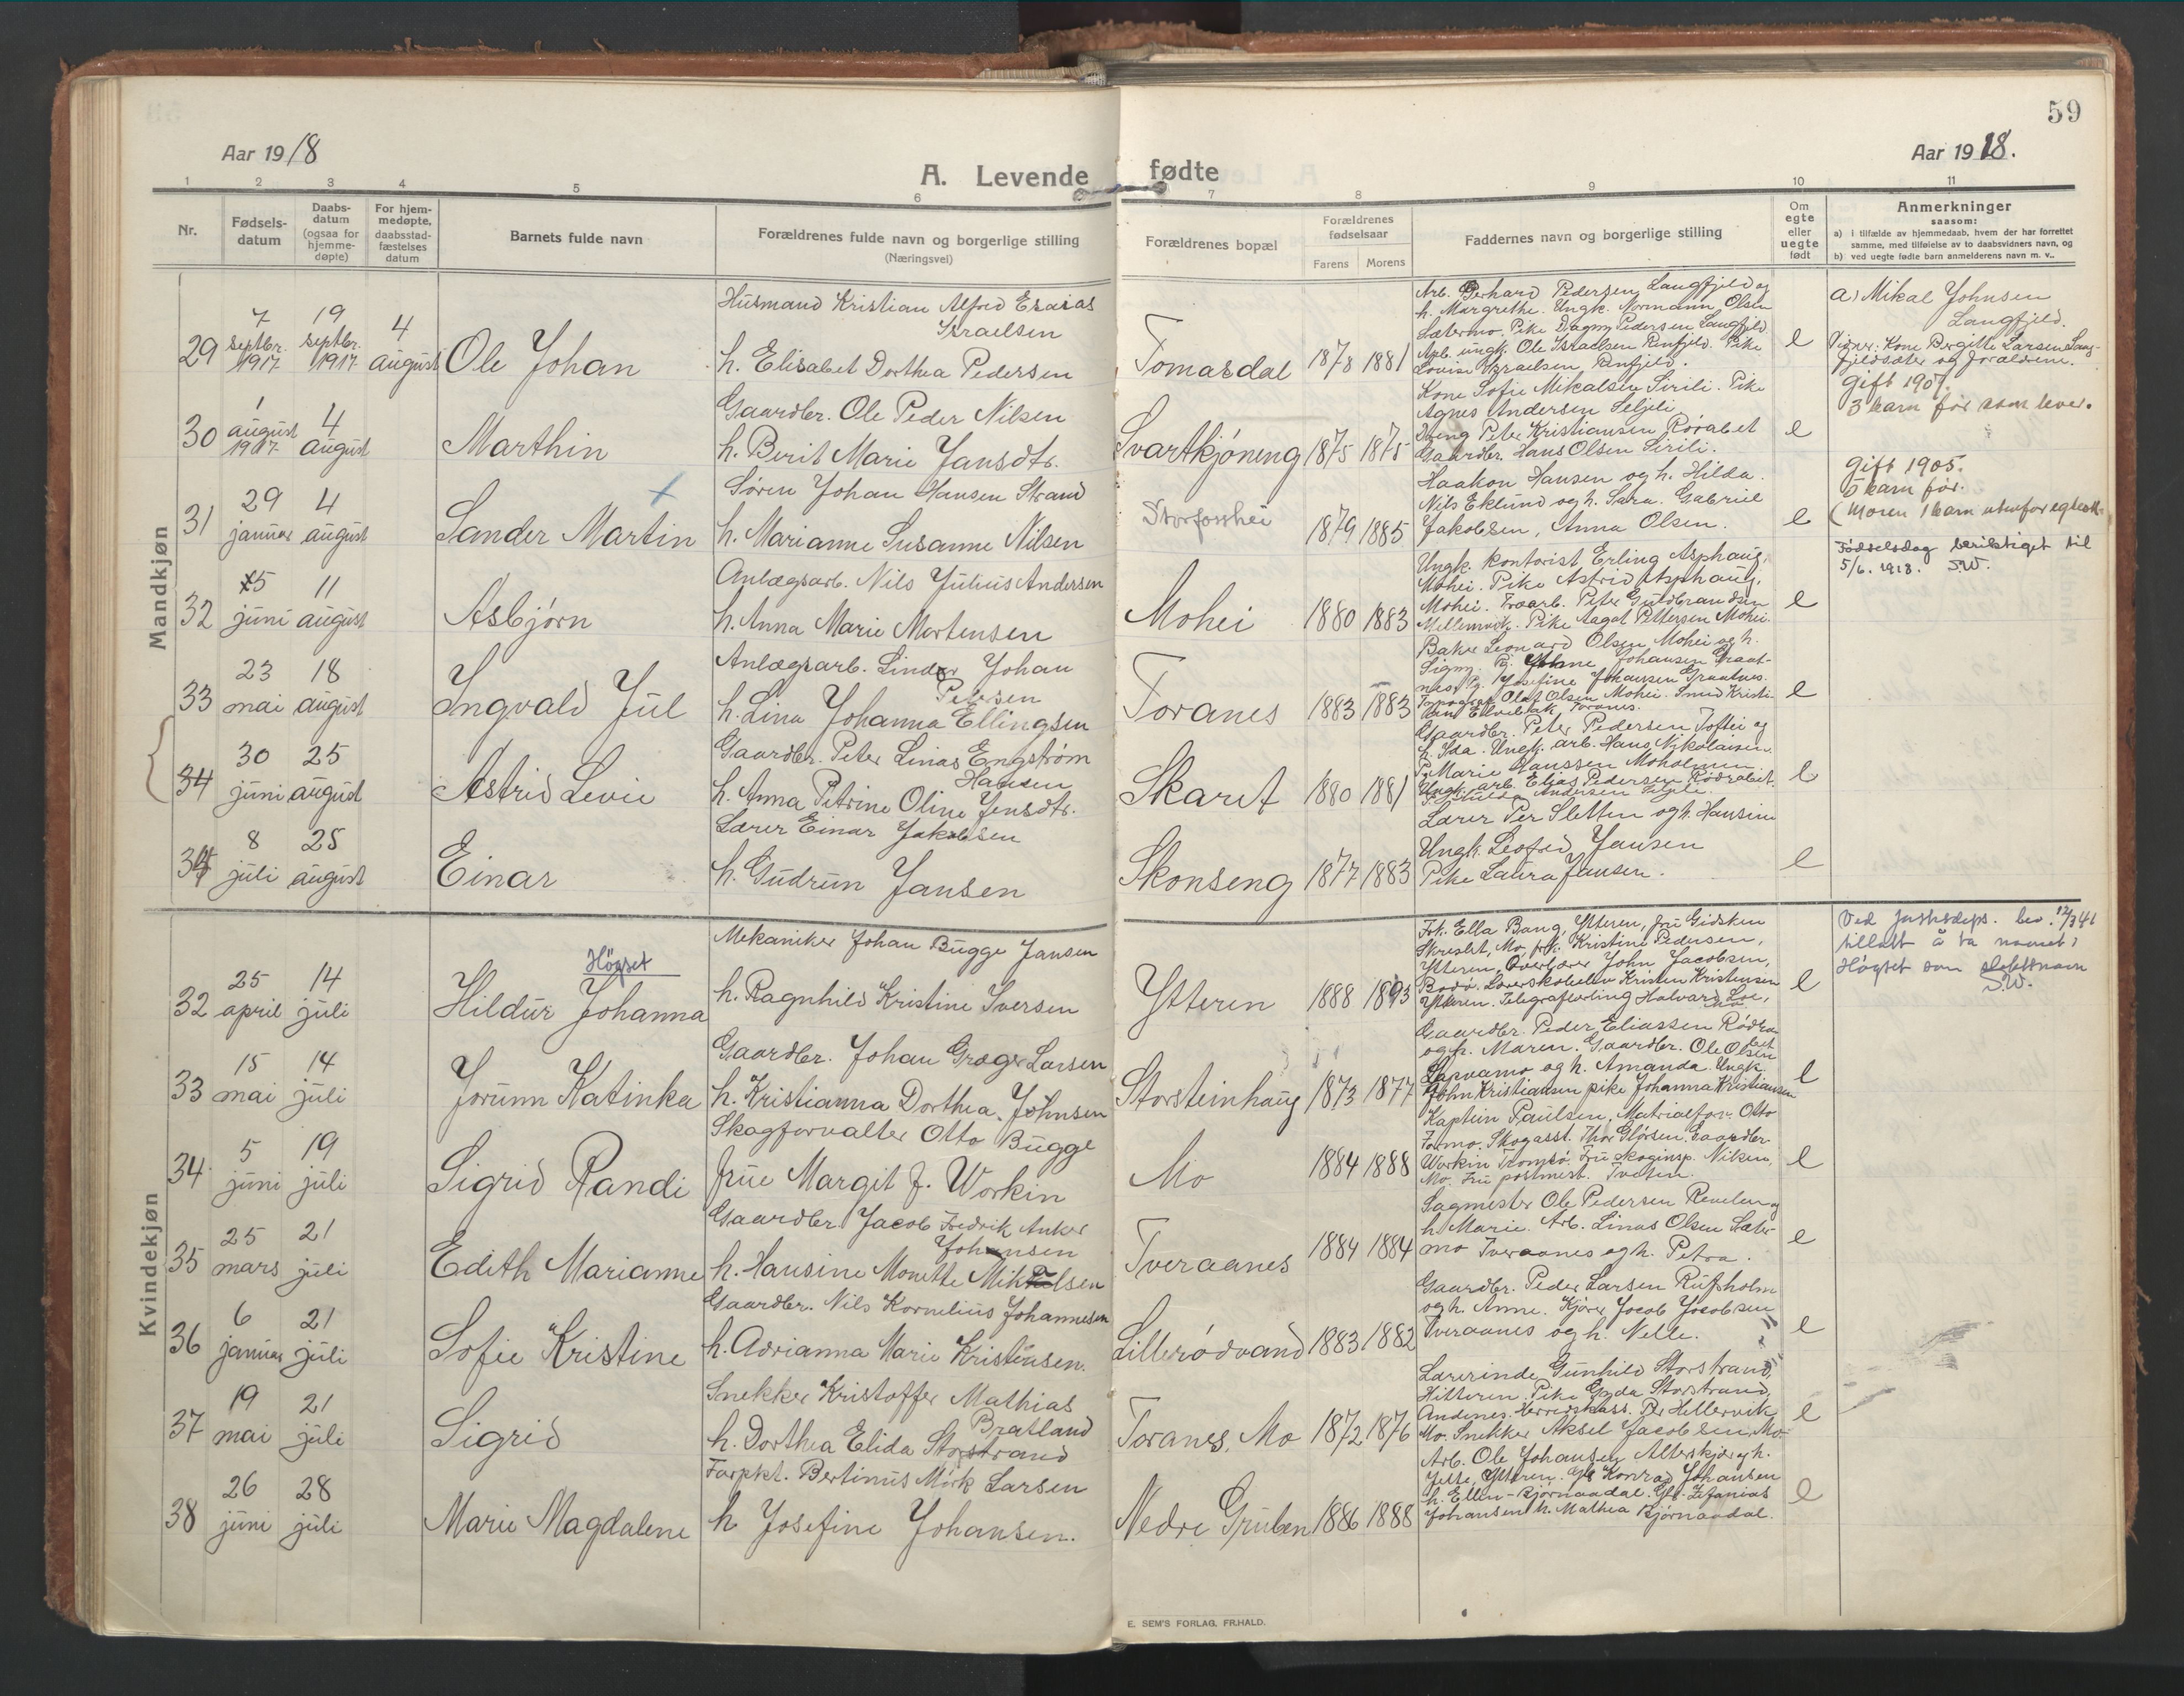 59
Aar 1918
Aar 1918.
A. Levende fødte
1 2 3 4 5 6 7 8 9 10 11
Nr.
Fødsels-
datum
Daabs-
datum
(ogsaa for
hjemme-
døpte)
For hjem-
medøpte,
daabsstad-
fæstelses
datum
Barnets fulde navn
Forældrenes fulde navn og borgerlige stilling
(Næringsvei)
Forældrenes bopæl
Forældrenes
fødselsaar
Farens Morens
Faddernes navn og borgerlige stilling
Om
egte
eller
uegte
født
Anmerkninger
saasom:
a) i tilfælde av hjemmedaab, hvem der har forrettet
samme, med tilføielse av to daabsvidners navn, og
b) ved uegte fødte barn anmelderens navn m. v..
Mandkjøn
29
7
septbr.
1917
19
septbr.
1917
4
august
Ole Johan
Husmand Kristian Alfred Esaias
Israelsen
h. Elisabet Dorthea Pedersen
Tomasdal
1878 1881
Arb. Gerhard Pedersen Langfjeld og
h. Margrethe. Ungk. Normann Olsen
Sætermo. Pike Dagny Pedersen Langfjeld
Arb. ungk. Ole Israelsen Renfjeld. Pike
Lovise Israelsen Renfjeld.
e
a) Mikal Johnsen
Langfjeld.
Vigner: Kone Bergitte Larsen Lang-
fjeldsæter og forældrene.
30
1
august
1917
4
august
Marthin
Gaardbr. Ole Peder Nilsen
h. Berit Marie Jansdtr.
Svartkjøneng
1875 1875
Kone Sofie Mikalsen Sirili. Pike
Agnes Andersen Seljeli.
Dreng Peter Kristiansen Rørabet
Gaardbr. Hans Olsen Sirili.
e
Gift 1907.
3 barn før som lever.
31
29
januar
4
august
Sander Martin
Søren Johan Hansen Strand
h. Marianne Susanne Nilsen
Storfosshei
1879 1885
Haakon Hansen og h. Hilda.
Nils Eklund og h. Sara. Gabriel
Jakobsen, Anna Olsen.
e
Gift 1905.
5 barn før.
(Moren 1 barn utenfor egtesk.
32
5
juni
11
august
Asbjørn
Anlægsarb. Nils Julius Andersen
h. Anna Marie Mortensen
Mohei
1880 1883
Ungk. kontorist Erling Asphaug,
Mohei. Pike Astrid Asphaug,
Mohei. Fraarb. Peter Guldbrandsen
Mellemvik. Pike Aagot Pettersen Mohei.
e
Fødselsdag beriktiget til
5/6. 1918. S.W.
33
23
mai
18
august
Ingvald Jul
Anlægsarb. Linder Johan
Petersen
h. Lina Johanna Ellingsen
Toranes
1883 1883
Baker Leonard Olsen Mohei og h.
Signy. Johansen Graat-
nes. Pg. Josefine Johansen Graatnes.
Olaf Olsen Mohei. Smed Kristi-
Toranes.
e
34
30
juni
25
august
Astrid Levie
Gaardbr. Peter Linas Engstrøm
Hansen
h. Anna Petrine Oline Jensdtr.
Skaret
1880 1881
Gaardbr. Peter Pedersen Toftei og
h. Ida. Ungk. arb. Hans Nikolaisen
P. Marie Hanssen Moholmen.
Ungk. arb. Elias Pedersen Rødrabet.
Andersen Seljeli.
e
34
8
juli
25
august
Einar
Lærer Einar Jakobsen
h. Gudrun Jansen
Skonseng
1877 1883
Lærer Per Sletten og h. Hansine
Ungk. Leofred Jansen
Pike Laura Jansen.
e
Kvindekjøn
32
25
april
14
juli
Høgset
Hildur Johanna
Mekaniker Johan Bugge Jansen
h. Ragnhild Kristine Iversen
Ytteren
1888 1893
Frk. Ella Bang, Ytteren, fru Gidsken
Skreslet, Mo, frk. Kristine Pedersen,
Ytteren, Overlærer John Jacobsen,
Bodø. Lærerskoleelev Kristen Kristensen
Ytteren. Telegraflærling Halvard Loe,
e
Ved Justisdeps. bev. 12/3 41
tillatt å ta navnet
Høgset som slektsnavn
S.W.
33
15
mai
14
juli
Jorunn Katinka
Gaardbr. Johan Græger Larsen
h. Kristianna Dorthea Johnsen
Storsteinhaug
1873 1877
Gaardbr. Peder Eliassen Rødra-
bet
og h. Maren. Gaardbr. Ole Olsen
og h. Amanda. Ungk.
John Kristiansen pike Johanna Kristiansen
e
34.
5
juni
19
juli
Sigrid Randi
Skogforvalter Otto Bugge
frue Margit J. Workin
Mo
1884 1888
Kaptein Paulsen, Matrialforv. Otto
Formo. Skogasst. Thor Glørsen. Gaardbr.
Workin Tromsø. Fru skoginsp. Niken,
Mo. Fru postmest. Tveten.
e
35
25
mars
21
juli
Edith Marianne
Gaardbr. Jacob Fredrik Anker
Johansen
h. Hansine Monette Mikalsen
Tveraanes
1884 1884
Sagmester Ole Pedersen Revelen og
h. Marie. Arb. Linas Olsen Sæter-
mo Tveraanes og h. Petra.
e
36
6
januar
21
juli
Sofie Kristine
Gaardbr. Nils Kornelius Johannesen
h. Adrianna Marie Kristensen.
Lillerødvand
1883 1882
Gaardbr. Peder Larsen Rufsholm
og h. Anne. Kjører Jacob Jacobsen
Tveraanes og h. Nelle.
e
37
19
mai
21
juli
Sigrid
Snekker Kristoffer Mathias
Bratland
h. Dorthea Elida Storstrand
Toranes, Mo
1872 1876
Lærerinde Gunhild Storstrand,
Hitteren. Pike Gyda Storstrand,
Andenes. Herredskass. Per Hellervik
Mo. Snekker Aksel Jacobsen, Mo.
e
38
26
juni
28
juli
Marie Magdalene
Forpkt. Bertinus Mørk Larsen
h. Josefine Johansen.
Nedre Gruben
1886 1888
Arb. Ole Johansen Alterskjær og h.
Jette, Ytteren. Gb. Konrad Johansen
h. Ellen - Bjørnaadal. Gb. Zefanias
Johansen h. Mathea Bjørnaadal.
e
E. SEM'S FORLAG, FR.HALD.